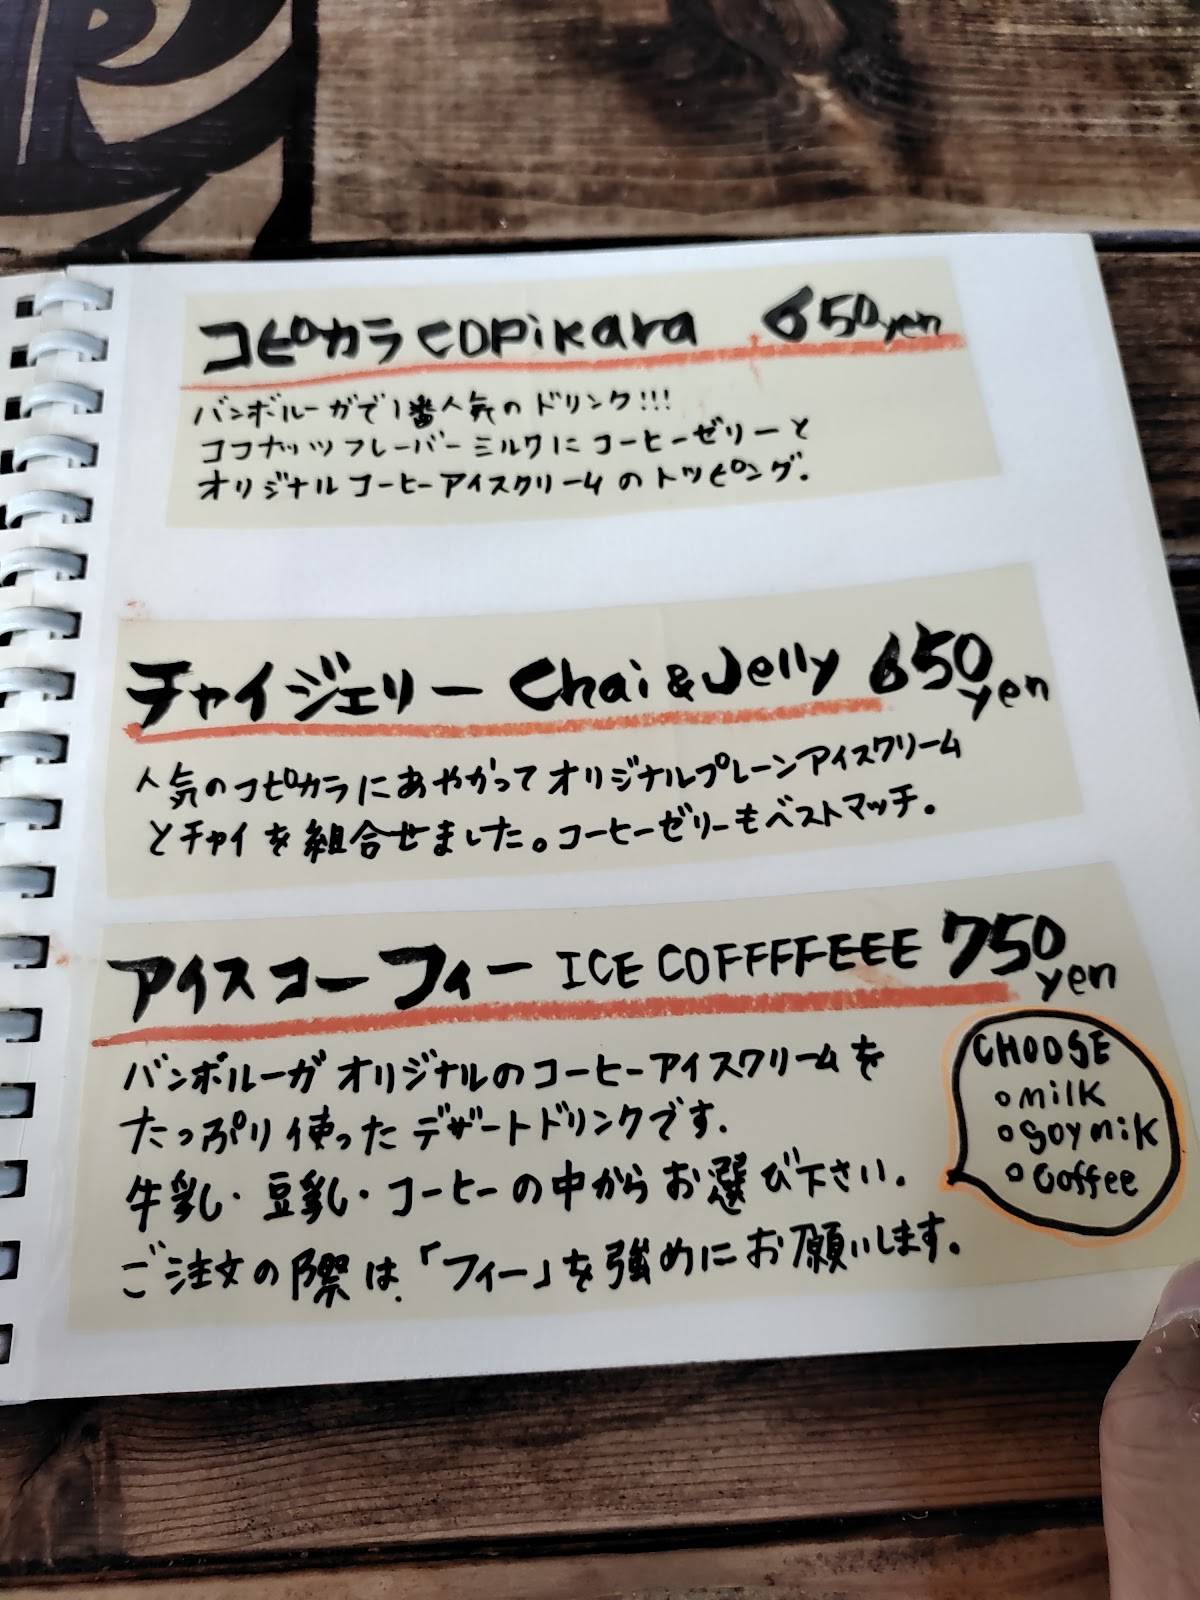 コピカラ COPiKara 650yen
バンボルーガで1番人気のドリンク!!!
ココナッツフレーバーミルクにコーヒーゼリーと
オリジナルコーヒーアイスクリームのトッピング.
チャイジェリー Chai & Jelly 650yen
人気のコピカラにあやかってオリジナルプレーンアイスクリーム
とチャイを組合せました。コーヒーゼリーもベストマッチ。
アイスコーフィー ICE COFFFFEEE 750yen
バンボルーガオリジナルのコーヒーアイスクリームを
たっぷり使ったデザートドリンクです.
牛乳・豆乳・コーヒーの中からお選び下さい.
ご注文の際は、「フィー」を強めにお願いします.
CHOOSE
○milk
○Soy milk
○Coffee